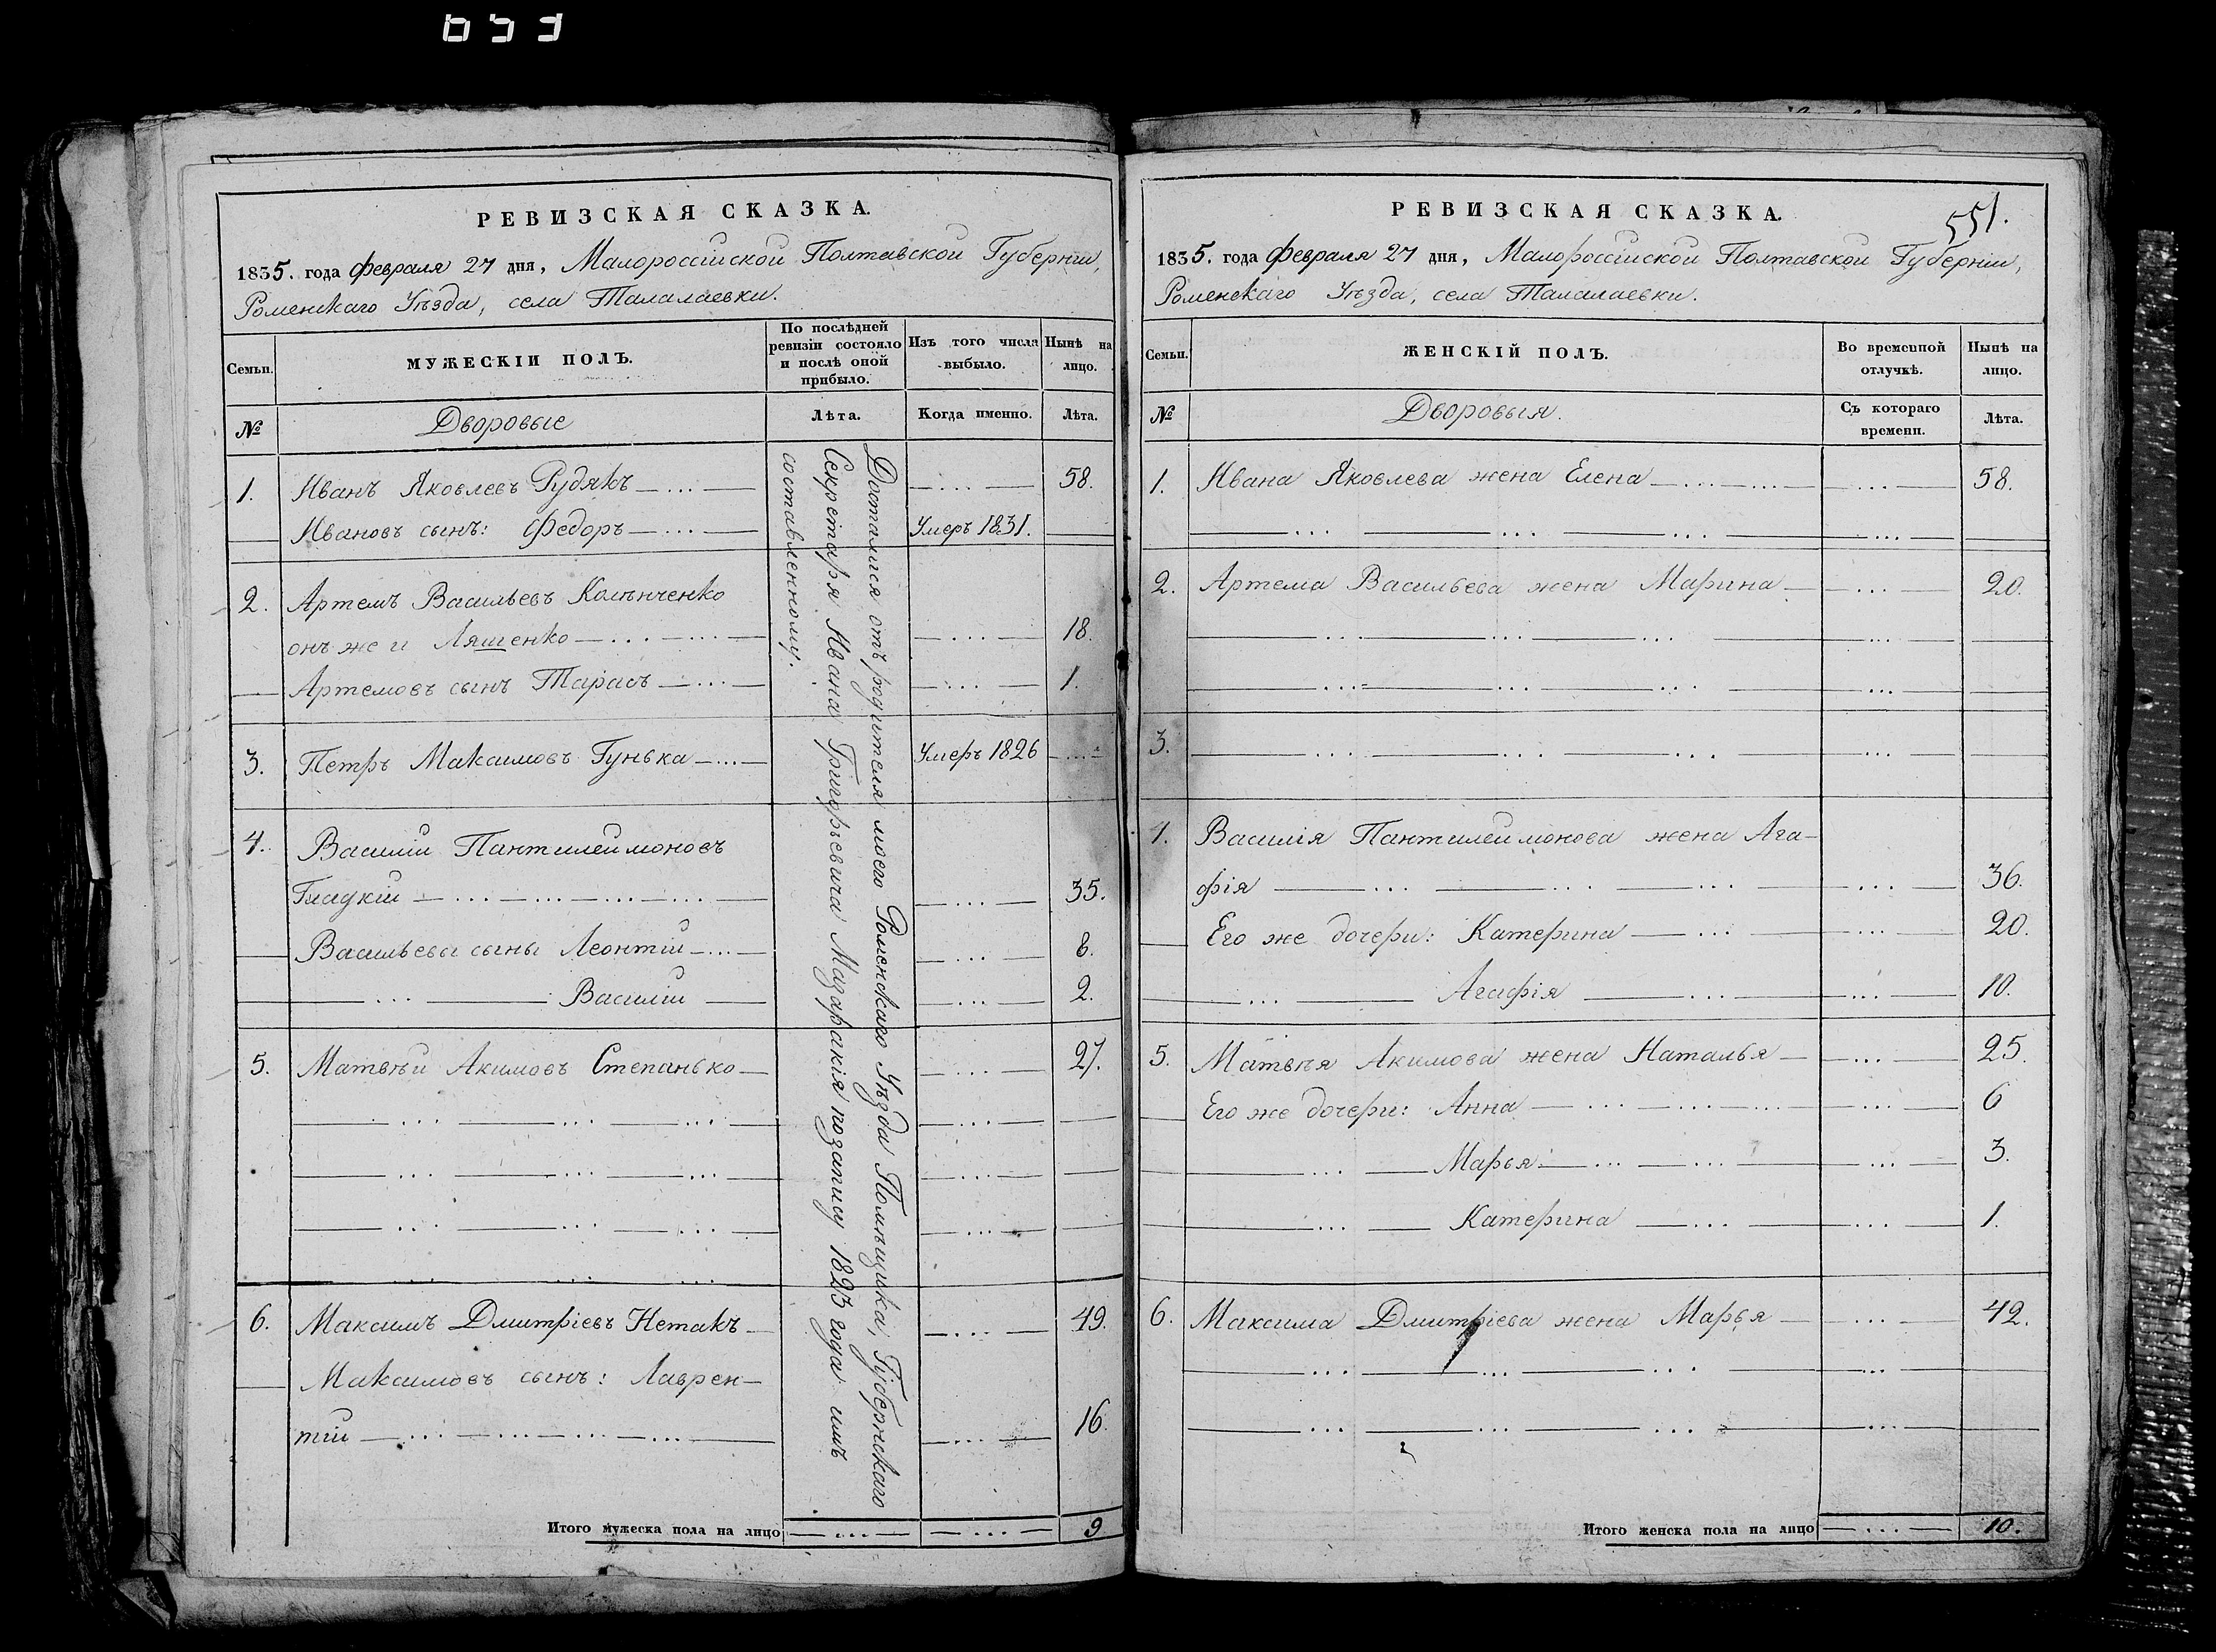 РЕВИЗСКАЯ СКАЗКА.
1835. года Февраля 27 дня, Малороссійской Полтавской Губерніи,
Роменскаго Уѣзда, села Талалаевки.
Семьи.
МУЖЕСКІИ ПОЛЪ.
По послѣдней
ревизіи состояло
и послѣ оной
прибыло.
Изъ того числа
выбыло.
Нынѣ на
лицо.
№
Дворовые
Лѣта.
Когда именно.
Лѣта.
Достался отъ родителя моего Роменскаго Уѣзда Помѣщика, Губернскаго
Секретаря Ивана Григорьевича Мазаракія позапису 1823 года имъ
составленному.
1. Иванъ Яковлевъ Рудякъ — ... — — ... — 58.
Ивановъ сынъ: Федоръ — ... — Умеръ 1831.
2. Артемъ Васильевъ Колѣнченко
онъ же и Ляшенко — ... — ... — — ... — 18.
Артемовъ сынъ Тарасъ — ... — — ... — 1.
3. Петръ Максимовъ Гунька — ... — Умеръ 1826 — ... —
4. Василій Пантилеймоновъ
Гладкій — ... — ... — ... — ... — — ... — 35.
Васильевы сыны Леонтій — ... — — ... — 8.
— ... — Василій — — ... — 2.
5. Матвѣй Акимовъ Степанько — — ... — 27.
6. Максимъ Дмитріевъ Нетакъ — — ... — 49.
Максимовъ сынъ: Лаврен-
тій — ... — ... — ... — ... — — ... — 16.
Итого мужеска пола на лицо — ... — — ... — 9
РЕВИЗСКАЯ СКАЗКА.
551.
1835. года Февраля 27 дня, Малороссійской Полтавской Губерніи,
Роменскаго Уѣзда, села Талалаевки.
Семьи.
ЖЕНСКІЙ ПОЛЪ.
Во временной
отлучкѣ.
Нынѣ на
лицо.
№
Дворовыя.
Съ котораго
времени.
Лѣта.
1. Ивана Яковлева жена Елена — ... — ... — — ... — 58.
2. Артема Васильева жена Марина — — ... — 20.
3. — ... — ... — ... — ... —
4. Василія Пантилеймонова жена Ага-
фія — ... — ... — ... — — ... — 36.
Его же дочери: Катерина — ... — — ... — 20.
— ... — Агафія — ... — — ... — 10.
5. Матвѣя Акимова жена Наталья — — ... — 25.
Его же дочери: Анна — ... — ... — ... — — ... — 6
— ... — Марья — ... — ... — — ... — 3.
— ... — Катерина — ... — — ... — 1.
6. Максима Дмитріева жена Марья — — ... — 42.
Итого женска пола на лицо — ... — 10.